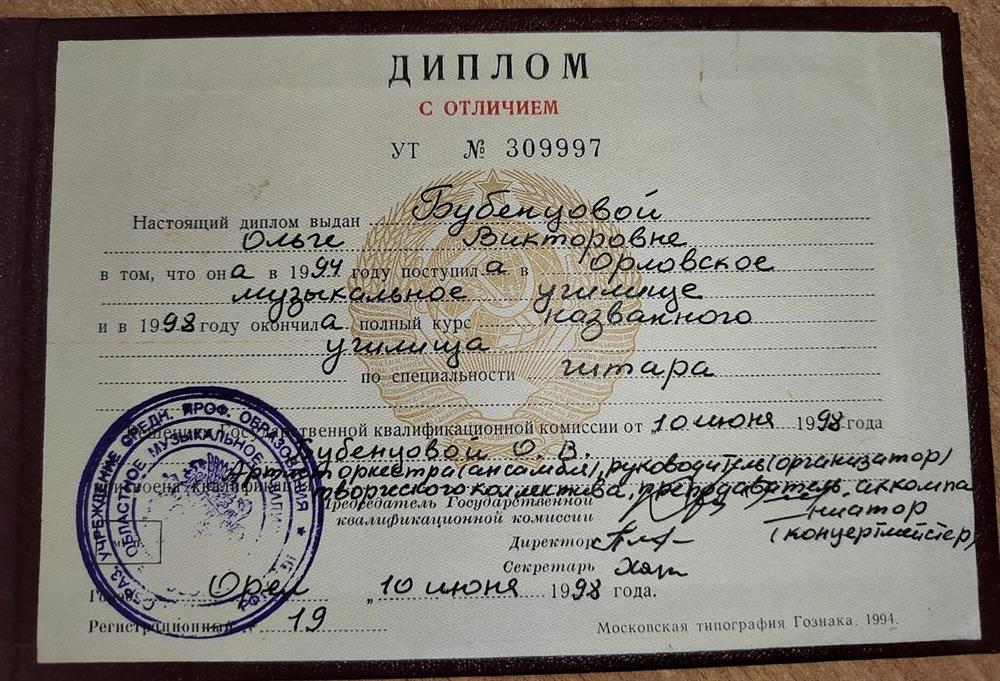 ДИПЛОМ
С ОТЛИЧИЕМ
УТ № 309997
Настоящий диплом выдан Бубенцовой
Ольге Викторовне
в том, что она в 1994 году поступила в Орловское
музыкальное училище
и в 1998 году окончила полный курс названного
училища
по специальности гитара
Решением Государственной квалификационной комиссии от "10 июня 1998 года
Бубенцовой О. В.
присвоена квалификация Артист оркестра (ансамбля), руководитель (организатор)
творческого коллектива, преподаватель, аккомпа
ниатор
(концертмейстер)
Председатель Государственной
квалификационной комиссии
Директор
Секретарь
Город Орел „10 июня 1998 года.
Регистрационный № 19
Московская типография Гознака. 1994.
УЧРЕЖДЕНИЕ СРЕДН. ПРОФ. ОБРАЗОВАНИЯ
ОБЛАСТНОЕ МУЗЫКАЛЬНОЕ